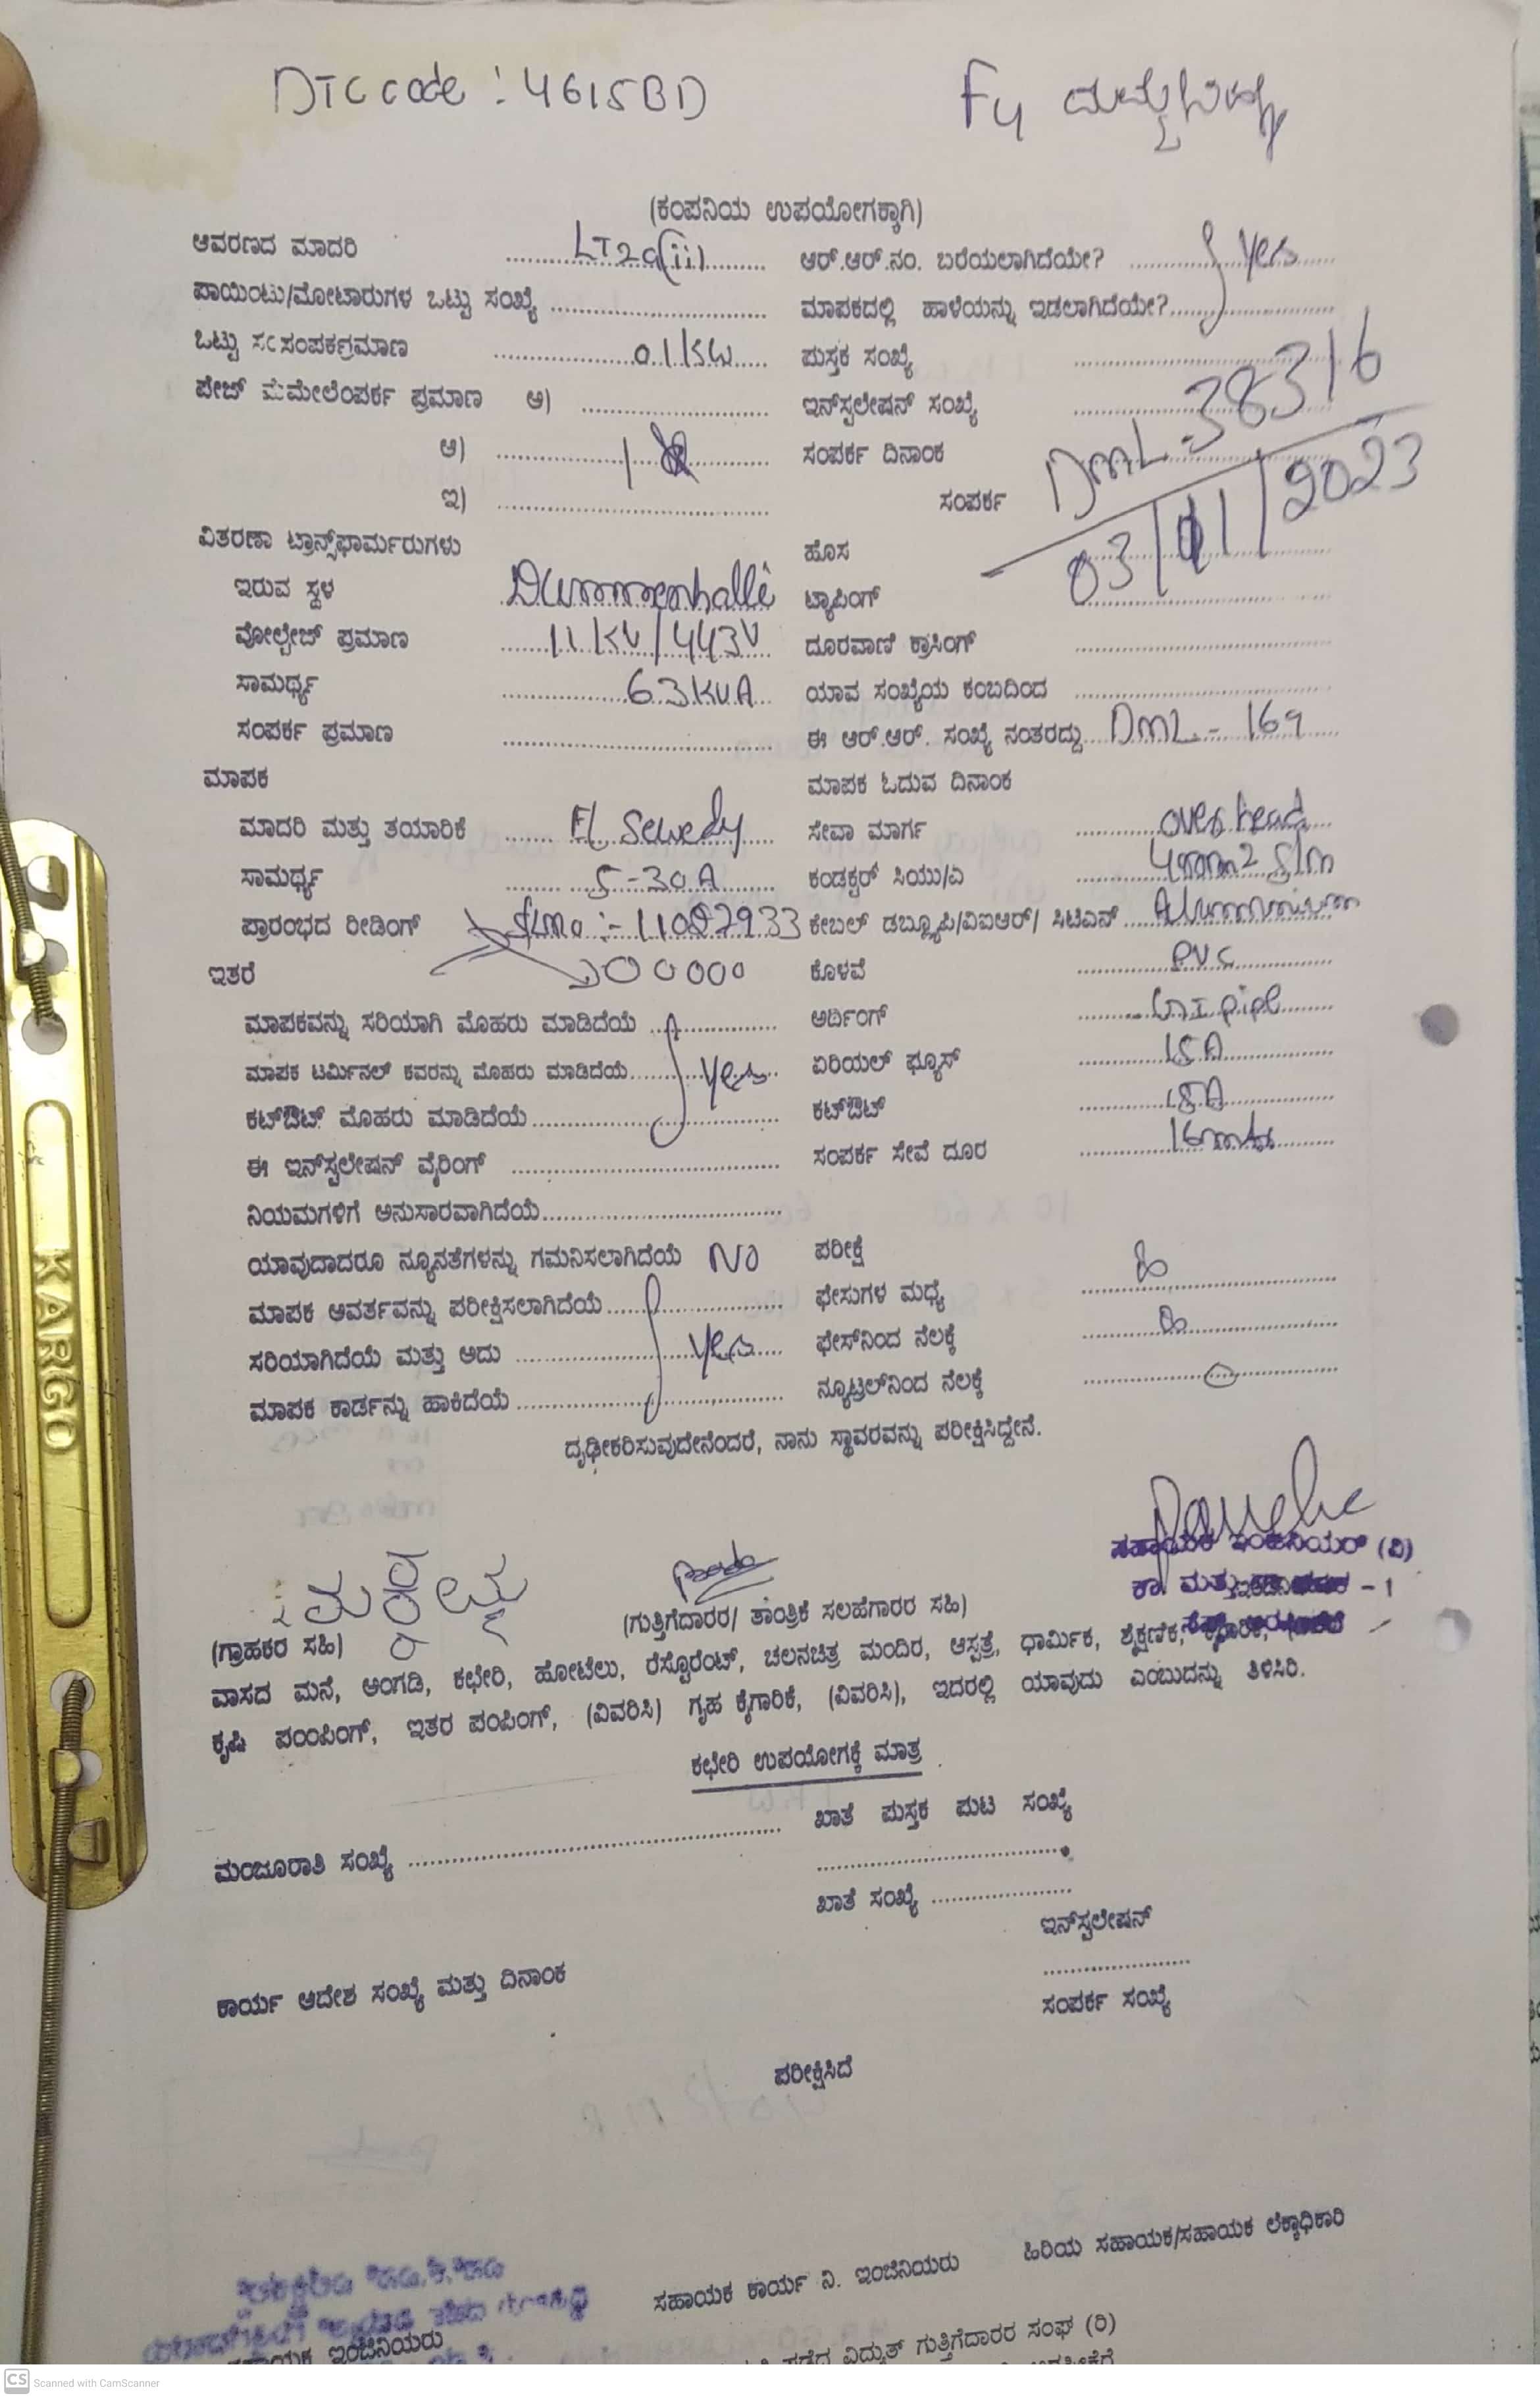 DTC code : 4615BD
F4
(ಕಂಪನಿಯ ಉಪಯೋಗಕ್ಕಾಗಿ)
ಆವರಣದ ಮಾದರಿ LT2a(ii) ಆರ್.ಆರ್.ನಂ. ಬರೆಯಲಾಗಿದೆಯೇ? Yes
ಪಾಯಿಂಟು/ಮೋಟಾರುಗಳ ಒಟ್ಟು ಸಂಖ್ಯೆ ಮಾಪಕದಲ್ಲಿ ಹಾಳೆಯನ್ನು ಇಡಲಾಗಿದೆಯೇ?
ಒಟ್ಟು ಪುಸ್ತಕ ಸಂಖ್ಯೆ
ಪೇಜ್ ಪ್ರಮಾಣ ಅ) ಇನ್‌ಸ್ಟಲೇಷನ್ ಸಂಖ್ಯೆ DML-38316
ಆ) 1 ಸಂಪರ್ಕ ದಿನಾಂಕ 03/01/2023
ಇ) ಸಂಪರ್ಕ
ವಿತರಣಾ ಟ್ರಾನ್ಸ್‌ಫಾರ್ಮರುಗಳು ಹೊಸ
ಇರುವ ಸ್ಥಳ Dummenhalli ಟ್ಯಾಪಿಂಗ್
ವೋಲ್ಟೇಜ್ ಪ್ರಮಾಣ 11KV/443V ದೂರವಾಣಿ ಕ್ರಾಸಿಂಗ್
ಸಾಮರ್ಥ್ಯ 63KVA ಯಾವ ಸಂಖ್ಯೆಯ ಕಂಬದಿಂದ
ಸಂಪರ್ಕ ಪ್ರಮಾಣ ಈ ಆರ್.ಆರ್. ಸಂಖ್ಯೆ ನಂತರದ್ದು DML - 169
ಮಾಪಕ ಮಾಪಕ ಓದುವ ದಿನಾಂಕ
ಮಾದರಿ ಮತ್ತು ತಯಾರಿಕೆ El Sewedy ಸೇವಾ ಮಾರ್ಗ over head
ಸಾಮರ್ಥ್ಯ 5-30A ಕಂಡಕ್ಟರ್ ಸಿಯು/ಎ
ಪ್ರಾರಂಭದ ರೀಡಿಂಗ್ Slno :- 11082933 ಕೇಬಲ್ ಡಬ್ಲ್ಯೂಪಿ/ವಿಐಆರ್/ ಸಿಟಿಎಸ್ Alumminium
ಇತರೆ 00000 ಕೊಳವೆ PVC
ಮಾಪಕವನ್ನು ಸರಿಯಾಗಿ ಮೊಹರು ಮಾಡಿದೆಯೆ ಅರ್ಥಿಂಗ್ GI pipe
ಮಾಪಕ ಟರ್ಮಿನಲ್ ಕವರನ್ನು ಮೊಹರು ಮಾಡಿದೆಯೆ Yes ಏರಿಯಲ್ ಫ್ಯೂಸ್ 15A
ಕಟ್‌ಔಟ್ ಮೊಹರು ಮಾಡಿದೆಯೆ ಕಟ್‌ಔಟ್ 15A
ಈ ಇನ್‌ಸ್ಟಲೇಷನ್ ವೈರಿಂಗ್ ಸಂಪರ್ಕ ಸೇವೆ ದೂರ 16mts
ನಿಯಮಗಳಿಗೆ ಅನುಸಾರವಾಗಿದೆಯೆ
ಯಾವುದಾದರೂ ನ್ಯೂನತೆಗಳನ್ನು ಗಮನಿಸಲಾಗಿದೆಯೆ NO ಪರೀಕ್ಷೆ
ಮಾಪಕ ಆವರ್ತವನ್ನು ಪರೀಕ್ಷಿಸಲಾಗಿದೆಯೆ ಫೇಸುಗಳ ಮಧ್ಯೆ
ಸರಿಯಾಗಿದೆಯೆ ಮತ್ತು ಅದು Yes ಫೇಸ್‌ನಿಂದ ನೆಲಕ್ಕೆ
ಮಾಪಕ ಕಾರ್ಡನ್ನು ಹಾಕಿದೆಯೆ ನ್ಯೂಟ್ರಲ್‌ನಿಂದ ನೆಲಕ್ಕೆ O
ದೃಢೀಕರಿಸುವುದೇನೆಂದರೆ, ನಾನು ಸ್ಥಾವರವನ್ನು ಪರೀಕ್ಷಿಸಿದ್ದೇನೆ.
ಸಹಾಯಕ ಇಂಜಿನಿಯರ್ (ವಿ)
ಕಾ. ಮತ್ತು - 1
(ಗ್ರಾಹಕರ ಸಹಿ) (ಗುತ್ತಿಗೆದಾರರ/ ತಾಂತ್ರಿಕ ಸಲಹೆಗಾರರ ಸಹಿ)
ವಾಸದ ಮನೆ, ಅಂಗಡಿ, ಕಛೇರಿ, ಹೋಟೆಲು, ರೆಸ್ಟೊರೆಂಟ್, ಚಲನಚಿತ್ರ ಮಂದಿರ, ಆಸ್ಪತ್ರೆ, ಧಾರ್ಮಿಕ, ಶೈಕ್ಷಣಿಕ,
ಕೃಷಿ ಪಂಂಪಿಂಗ್, ಇತರ ಪಂಪಿಂಗ್, (ವಿವರಿಸಿ) ಗೃಹ ಕೈಗಾರಿಕೆ, (ವಿವರಿಸಿ), ಇದರಲ್ಲಿ ಯಾವುದು ಎಂಬುದನ್ನು ತಿಳಿಸಿರಿ.
ಕಛೇರಿ ಉಪಯೋಗಕ್ಕೆ ಮಾತ್ರ
ಮಂಜೂರಾತಿ ಸಂಖ್ಯೆ ಖಾತೆ ಪುಸ್ತಕ ಪುಟ ಸಂಖ್ಯೆ
ಖಾತೆ ಸಂಖ್ಯೆ
ಇನ್‌ಸ್ಟಲೇಷನ್
ಕಾರ್ಯ ಆದೇಶ ಸಂಖ್ಯೆ ಮತ್ತು ದಿನಾಂಕ ಸಂಪರ್ಕ ಸಂಖ್ಯೆ
ಪರೀಕ್ಷಿಸಿದೆ
ಸಹಾಯಕ ಕಾರ್ಯ ನಿ. ಇಂಜಿನಿಯರು ಹಿರಿಯ ಸಹಾಯಕ/ಸಹಾಯಕ ಲೆಕ್ಕಾಧಿಕಾರಿ
ಸಹಾಯಕ ಇಂಜಿನಿಯರು ಪಡೆದ ವಿದ್ಯುತ್ ಗುತ್ತಿಗೆದಾರರ ಸಂಘ (ರಿ)
KARGO
CS Scanned with CamScanner